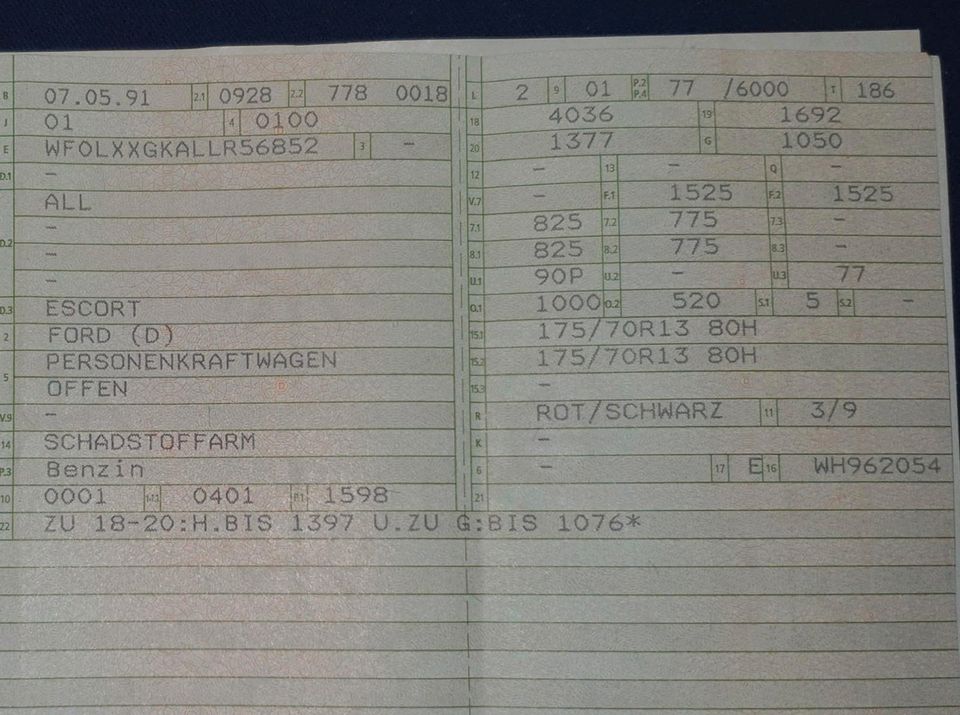 B 07.05.91 2.1 0928 2.2 778 0018
J 01 4 0100
E WF0LXXGKALLR56852 3 -
D.1 -
ALL
D.2 -
-
-
D.3 ESCORT
2 FORD (D)
5 PERSONENKRAFTWAGEN
OFFEN
V.9 -
14 SCHADSTOFFARM
P.3 Benzin
10 0001 14.1 0401 P.1 1598
22 ZU 18-20:H.BIS 1397 U.ZU G:BIS 1076*
L 2 9 01 P.2 P.4 77 /6000 T 186
18 4036 19 1692
20 1377 G 1050
12 - 13 - Q -
V.7 - F.1 1525 F.2 1525
7.1 825 7.2 775 7.3 -
8.1 825 8.2 775 8.3 -
U.1 90P U.2 - U.3 77
O.1 1000 O.2 520 S.1 5 S.2 -
15.1 175/70R13 80H
15.2 175/70R13 80H
15.3 -
R ROT/SCHWARZ 11 3/9
K -
6 - 17 E 16 WH962054
21